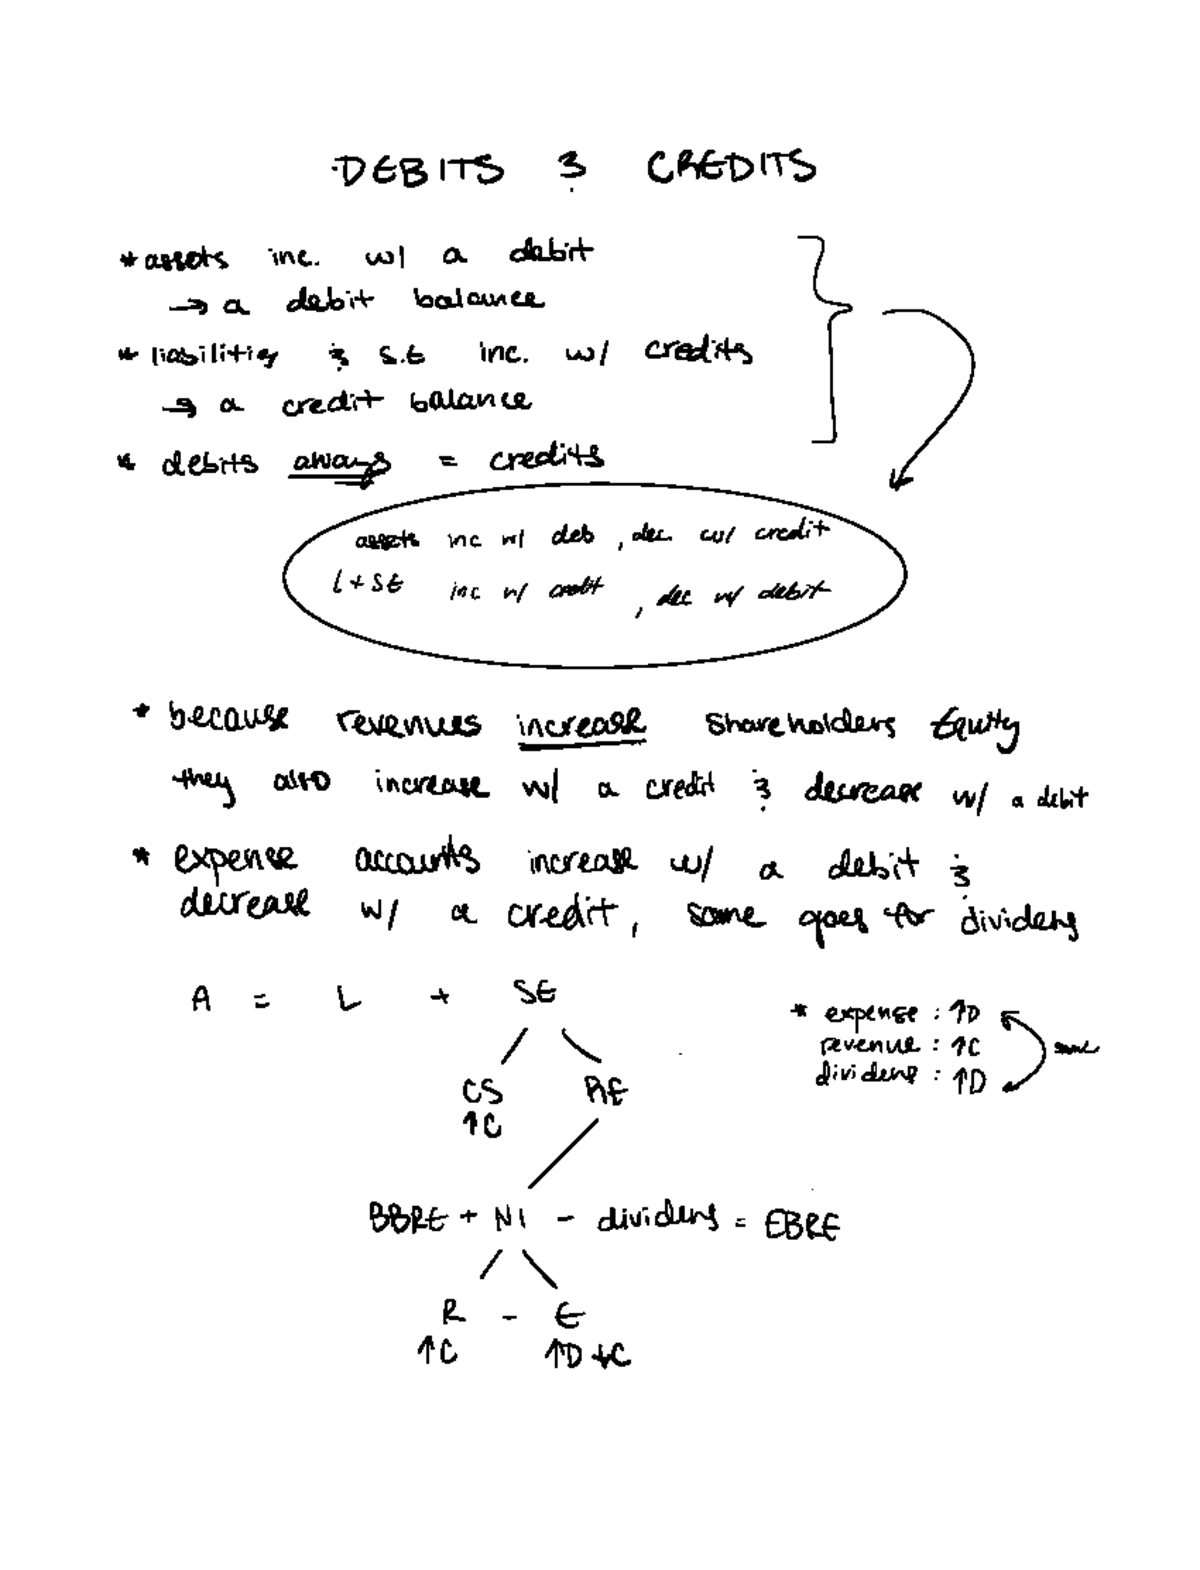 DEBITS & CREDITS
* assets inc. w/ a debit
→ a debit balance
* liabilities & S.E inc. w/ credits
→ a credit balance
* debits always = credits
assets inc w/ deb, dec. w/ credit
L + SE inc w/ credit, dec w/ debit
* because revenues increase shareholders Equity
they also increase w/ a credit & decrease w/ a debit
* expense accounts increase w/ a debit &
decrease w/ a credit, same goes for dividens
A = L + SE
* expense : ↑D
revenue : ↑C same
dividens : ↑D
CS RE
↑C
BBRE + NI - dividens = EBRE
R - E
↑C ↑D ↓C